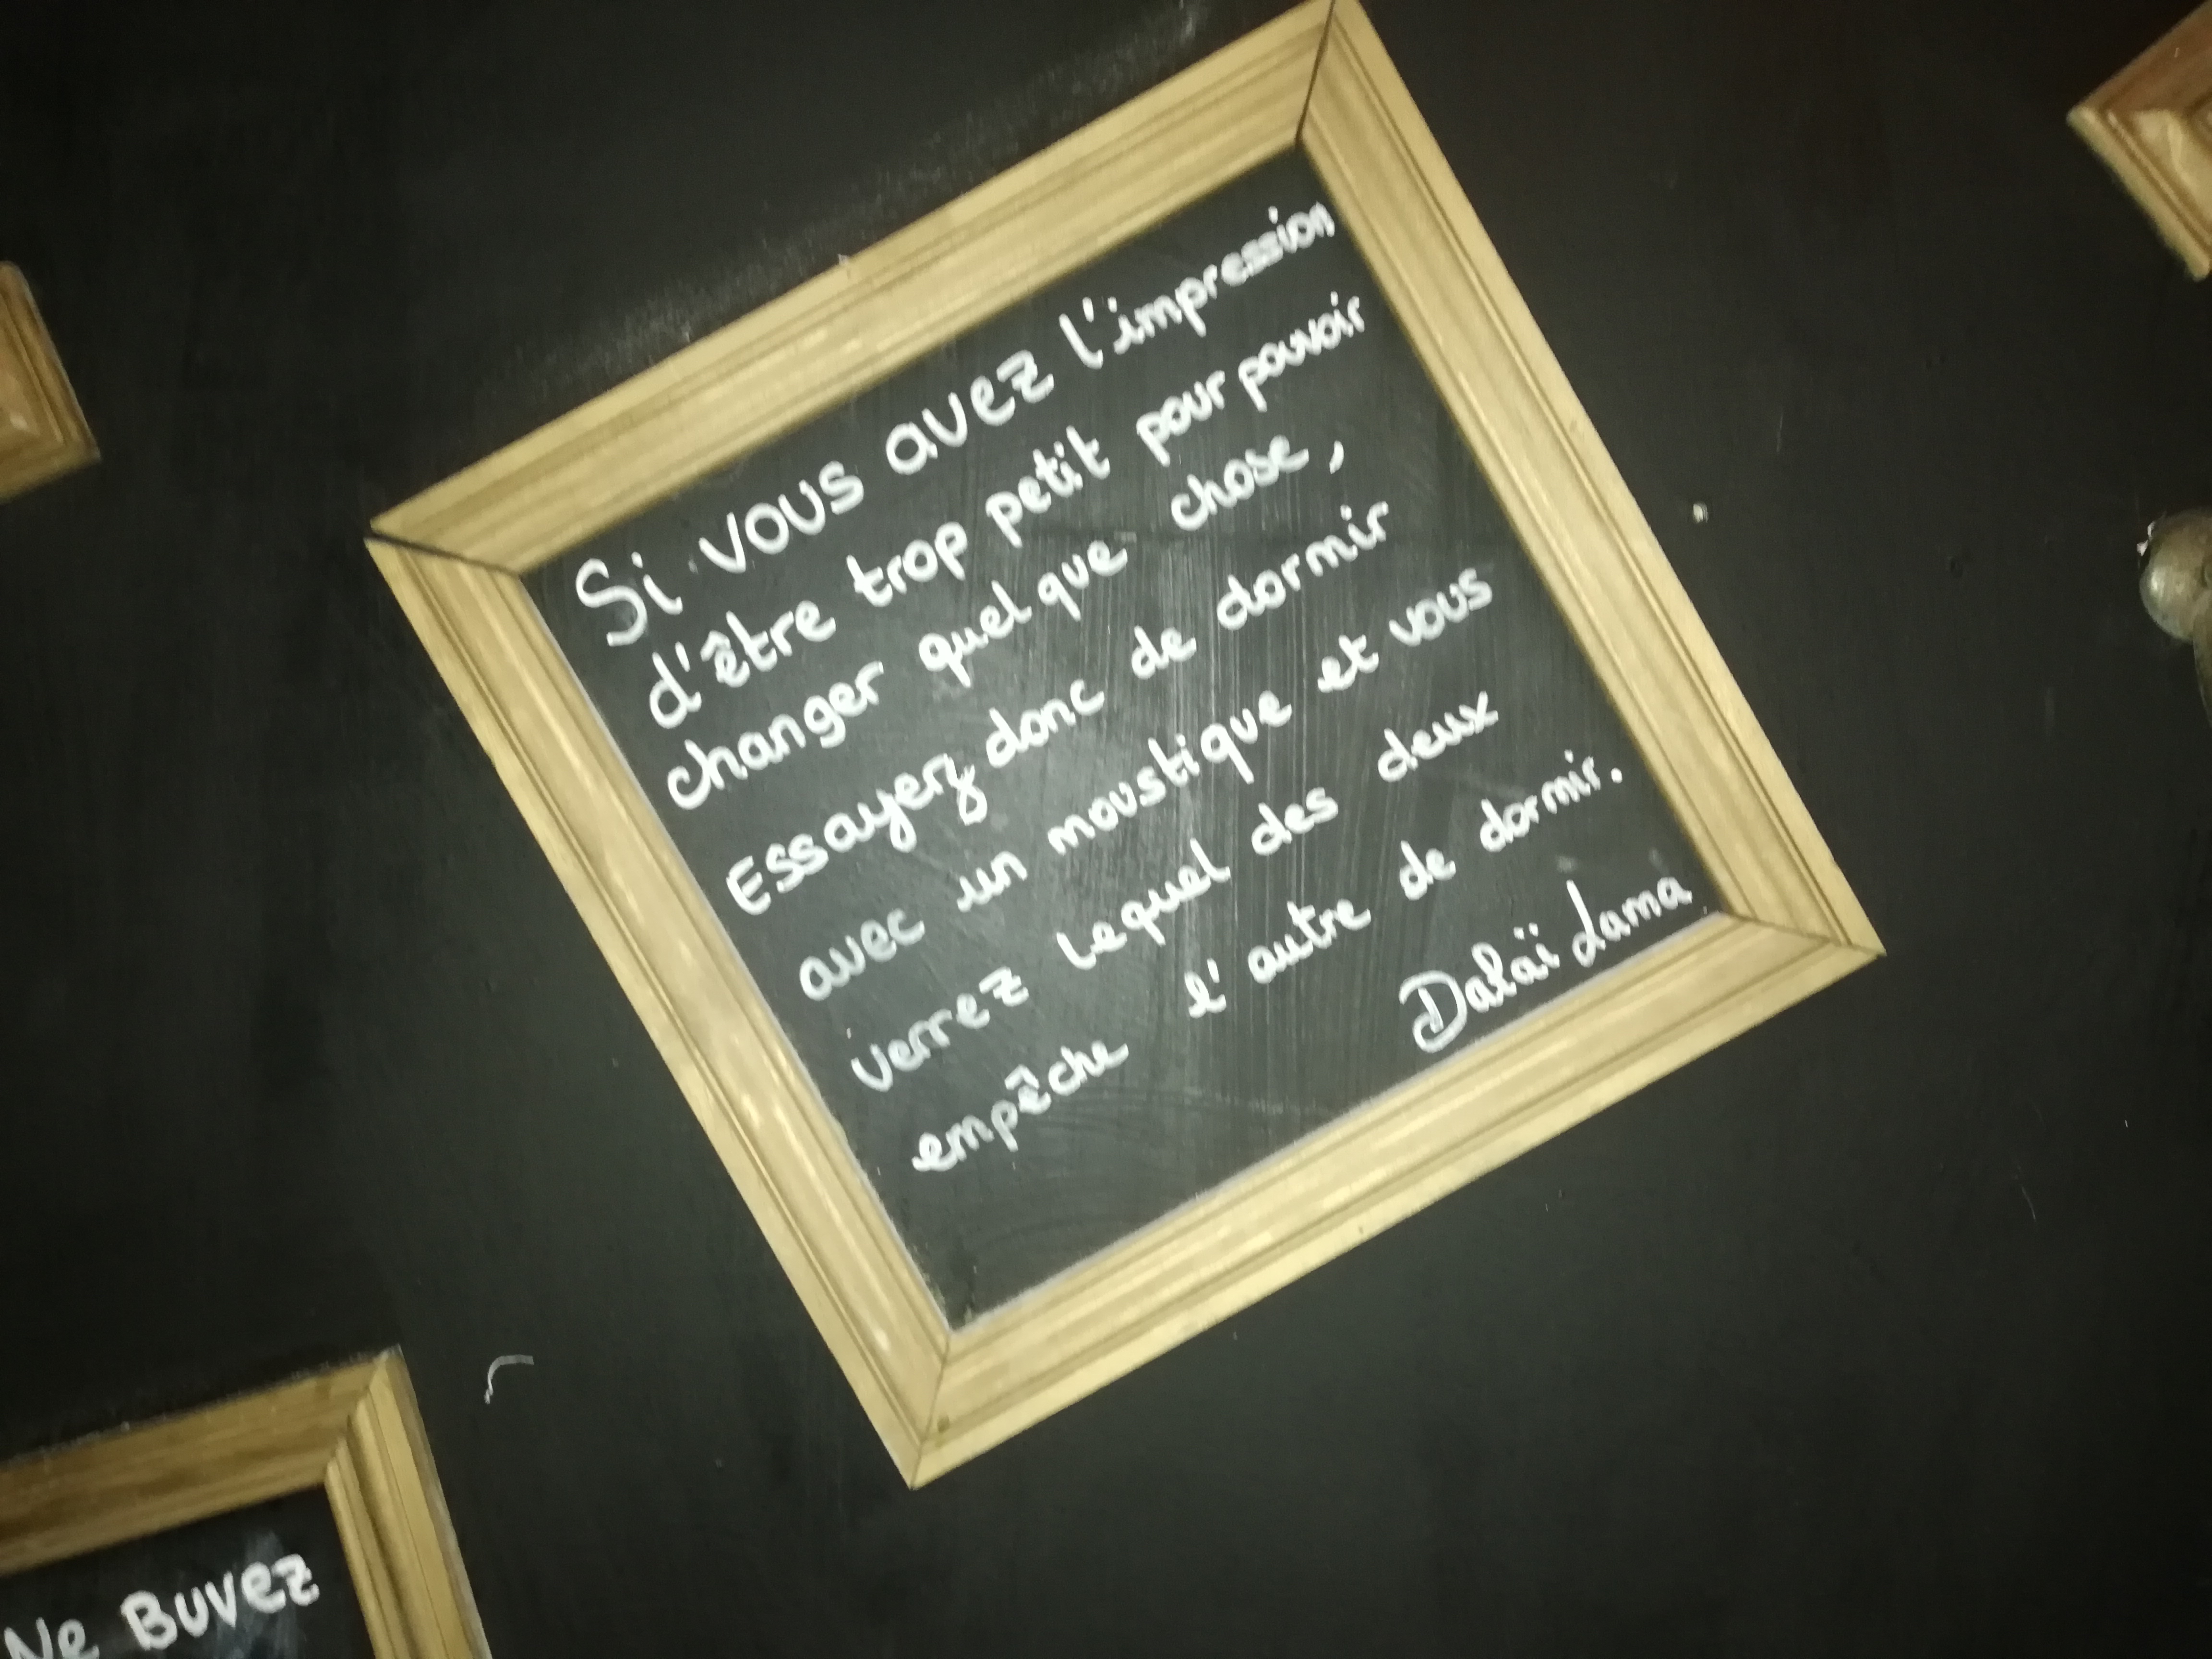 Si vous avez l'impression
d'être trop petit pour pouvoir
changer quelque chose,
Essayez donc de dormir
avec un moustique et vous
verrez lequel des deux
empêche l'autre de dormir.
Dalaï Lama
Ne Buvez